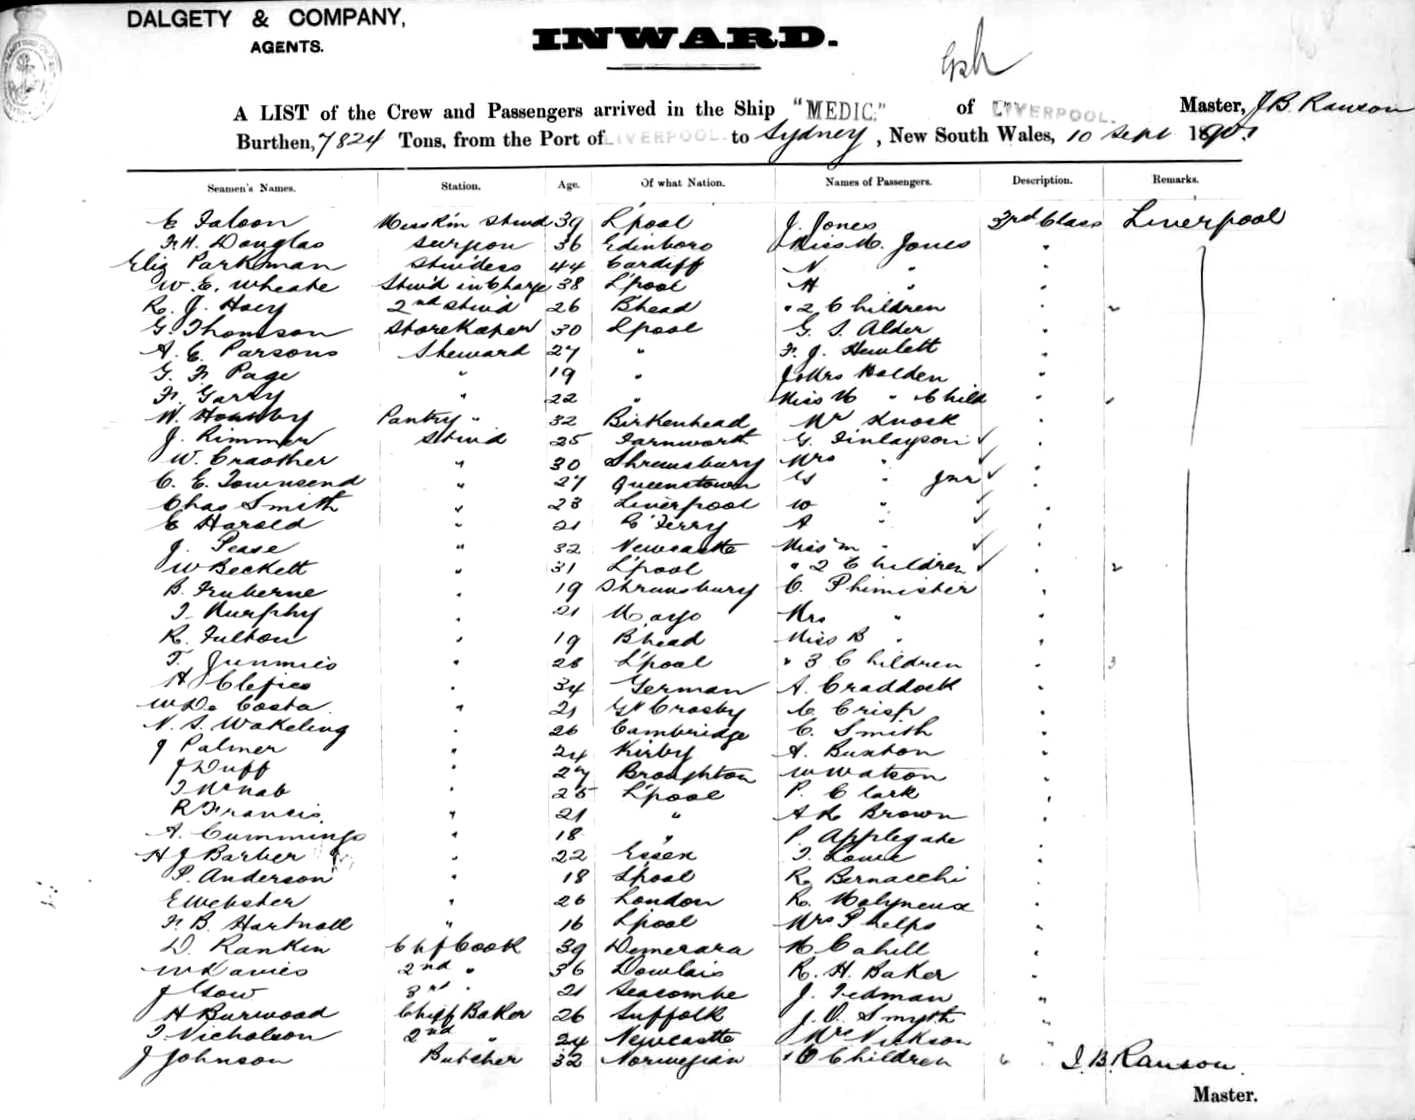 DALGETY & COMPANY,
AGENTS.
INWARD.
A LIST of the Crew and Passengers arrived in the Ship "MEDIC." of LIVERPOOL. Master, J.B. Ranson
Burthen, 7824 Tons, from the Port of LIVERPOOL. to Sydney, New South Wales, 10 Sept
Seamen's Names. Station. Age. Of what Nation. Names of Passengers. Description. Remarks.
39 L'pool J. Jones 3rd Class Liverpool
F.H. Douglas Surgeon 36 Edinboro Miss M. Jones "
Eliz Parkman Stw'dess 44 Cardiff N " "
W. E. Wheate Stw'd in Charge 38 L'pool H " "
R. J. Hoey 2nd Stw'd 26 B'head " 2 Children " 2
G. Thomson Storekeeper 30 L'pool G. S. Alder "
A. E. Parsons Steward 27 " F. J. Hewlett "
G. F. Page " 19 " Holden "
F. Garry " 22 " Miss M " Child "
W. Pantry " 32 Birkenhead Mr "
J. Rimmer Stw'd 25 Farnworth G. Finlayson "
W. " 30 Shrewsbury Mrs " "
C. E. Townsend " 27 Queenstown G " Jnr "
Chas Smith " 23 Liverpool W " "
E Harold " 21 Ferry A " "
J. Pease " 32 Newcastle Miss M " "
W Beckett " 31 L'pool " 2 Children " 2
B. " 19 Shrewsbury C. Phimister "
T. Murphy " 21 Mayo Mrs " "
R. Fulton " 19 B'head Miss B " "
T. " 28 L'pool " 3 Children " 3
H " 34 German A. Craddock "
W Da Costa " 21 Gt Crosby C Crisp "
N. S. Wakeling " 26 Cambridge C. Smith "
J Palmer " 24 Kirby A. Buxton "
J Duff " 27 Broughton W Watson "
T McNab " 25 L'pool P. Clark "
R Francis " 21 " Brown "
A. Cummings " 18 " P. Applegate "
H J Barber " 22 Essex T. Lowe "
P. Anderson " 18 L'pool R. Bernacchi "
E Webster " 26 London R. Molyneux "
F. B. Hartnoll " 16 L'pool Mrs Phelps "
D. Rankin Chf Cook 39 Demerara M Cahill "
W Davies 2nd " 36 Dowlais R. H. Baker "
J Gow 3rd " 21 Seacombe J. Tedman "
H Burwood Chief Baker 26 Suffolk J. O. Smyth "
T. Nicholson 2nd " 24 Newcastle Mrs "
J Johnson Butcher 32 Norwegian Children J.B. Ranson
Master.